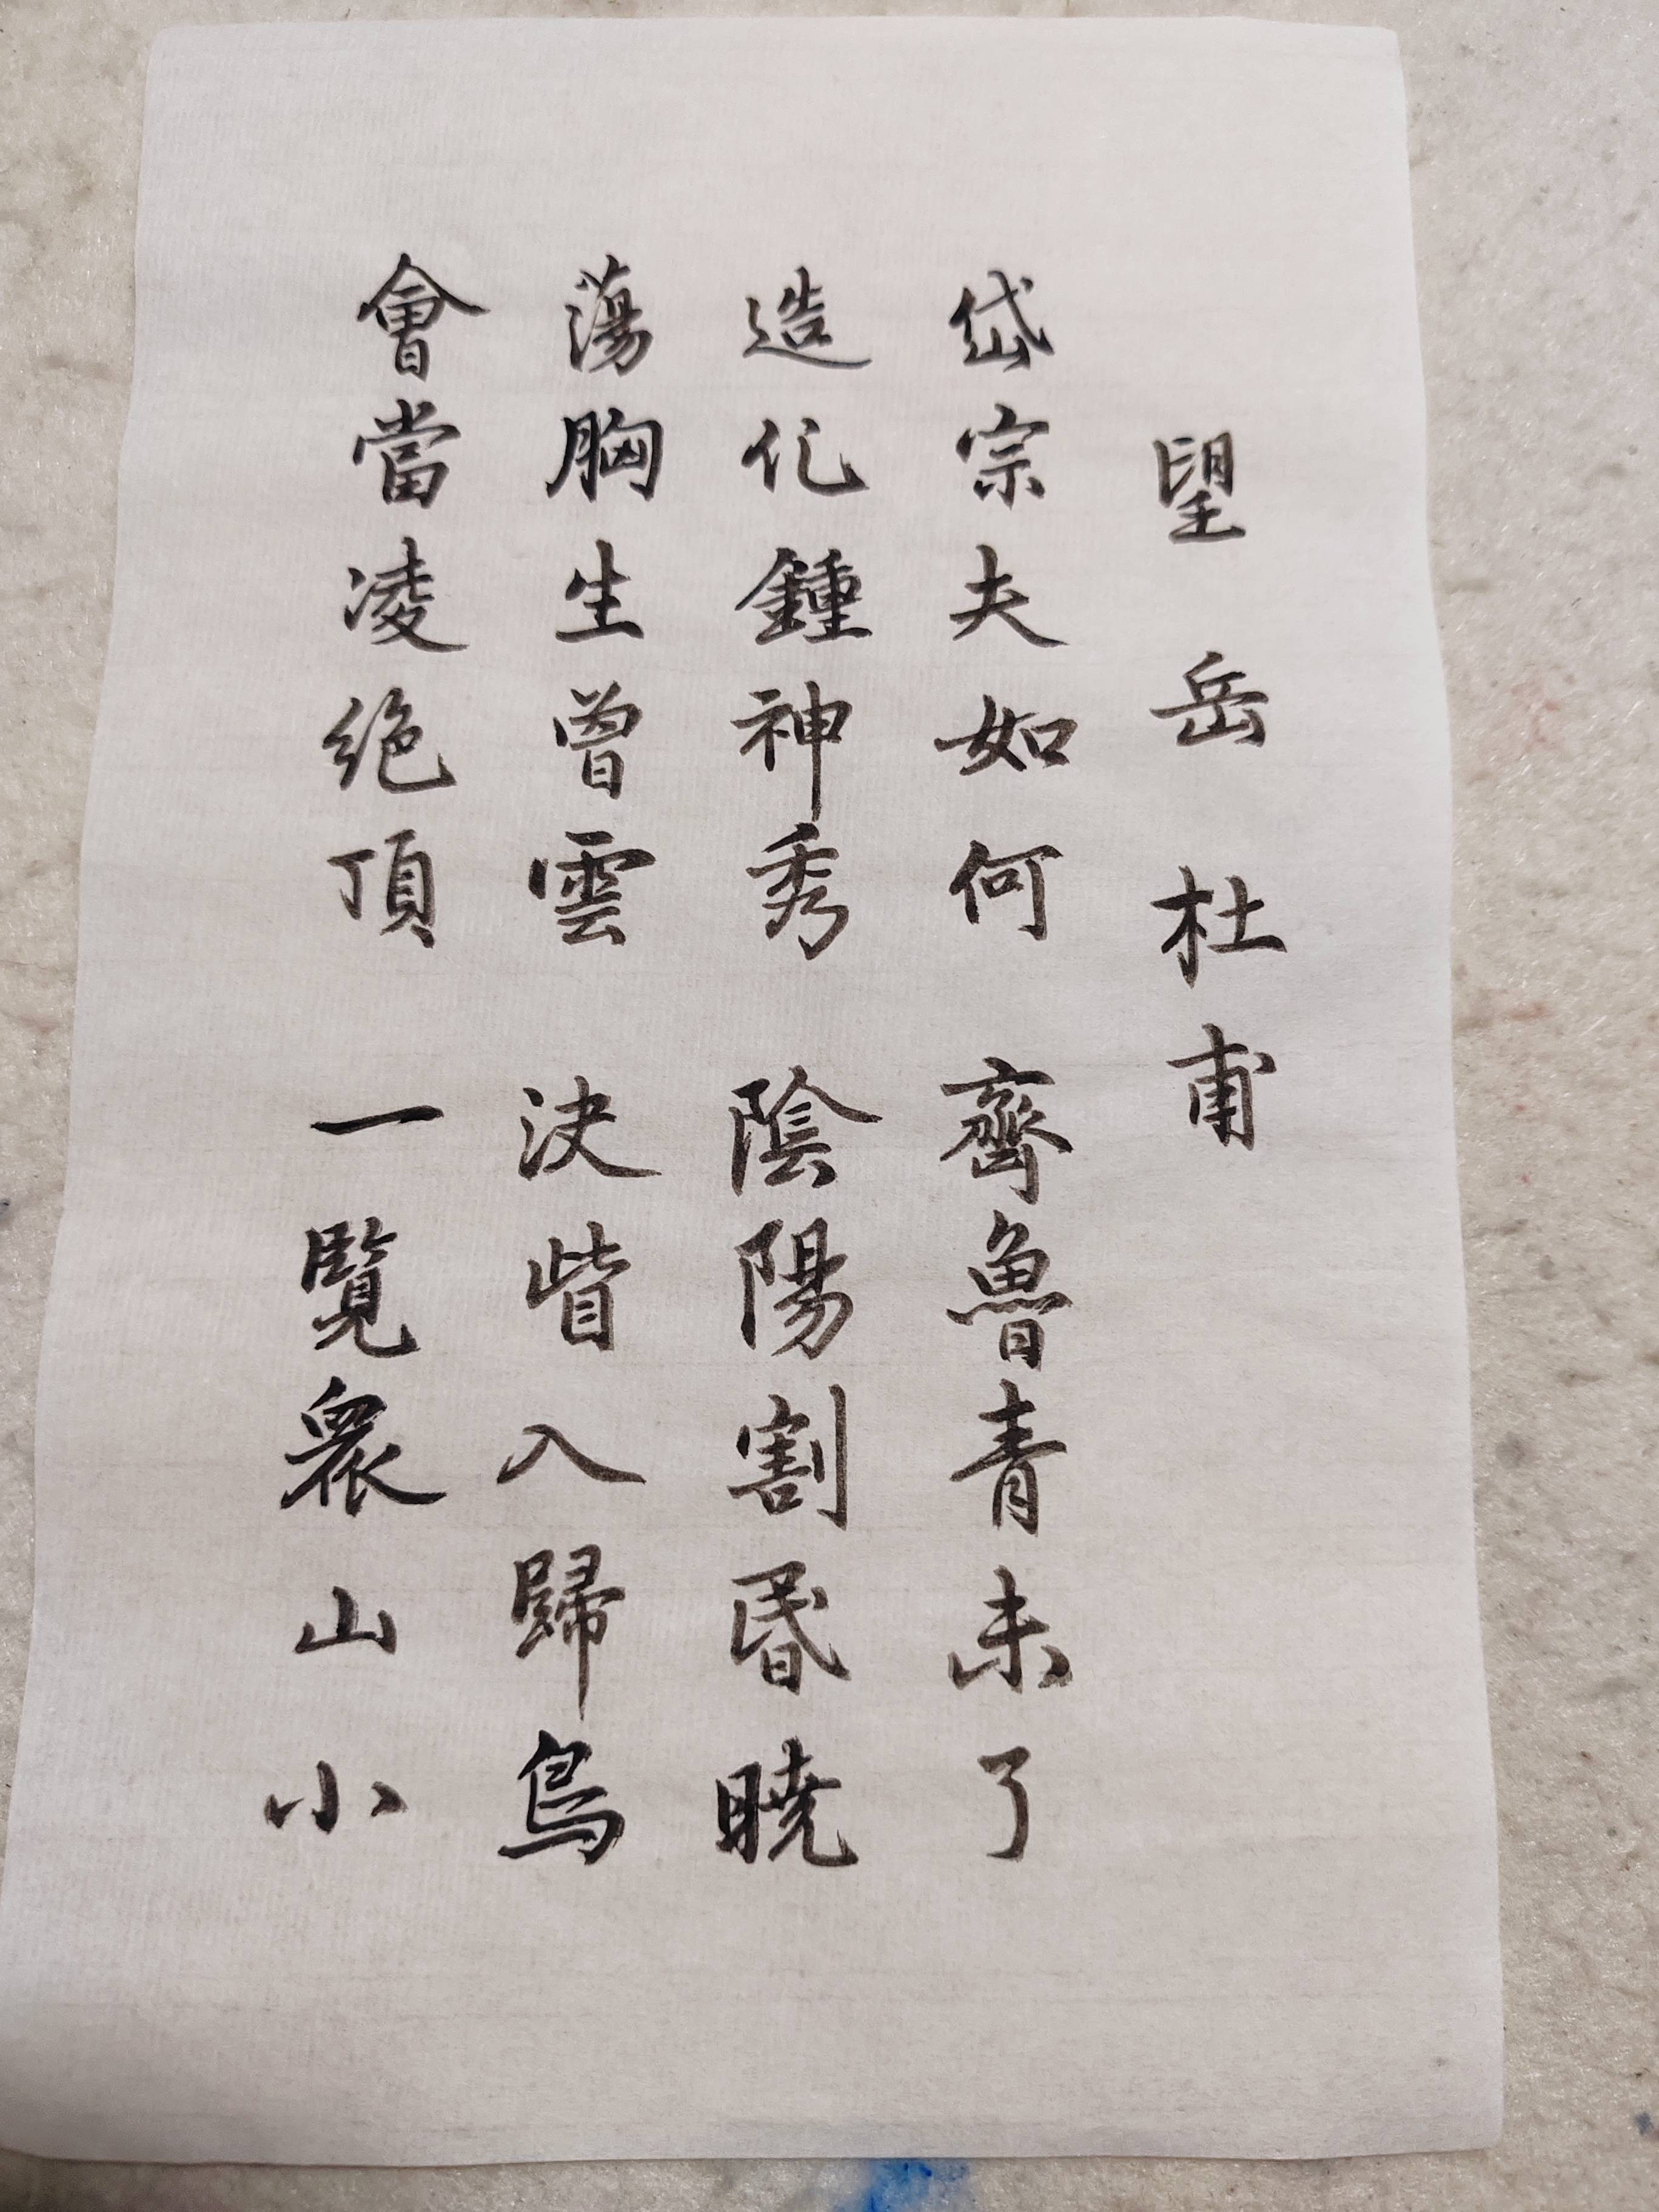 望岳杜甫
岱宗夫如何 齊魯青未了
造化鍾神秀 陰陽割昏曉
蕩胸生曾雲 決眥入歸鳥
會當凌絕頂 一覽眾山小